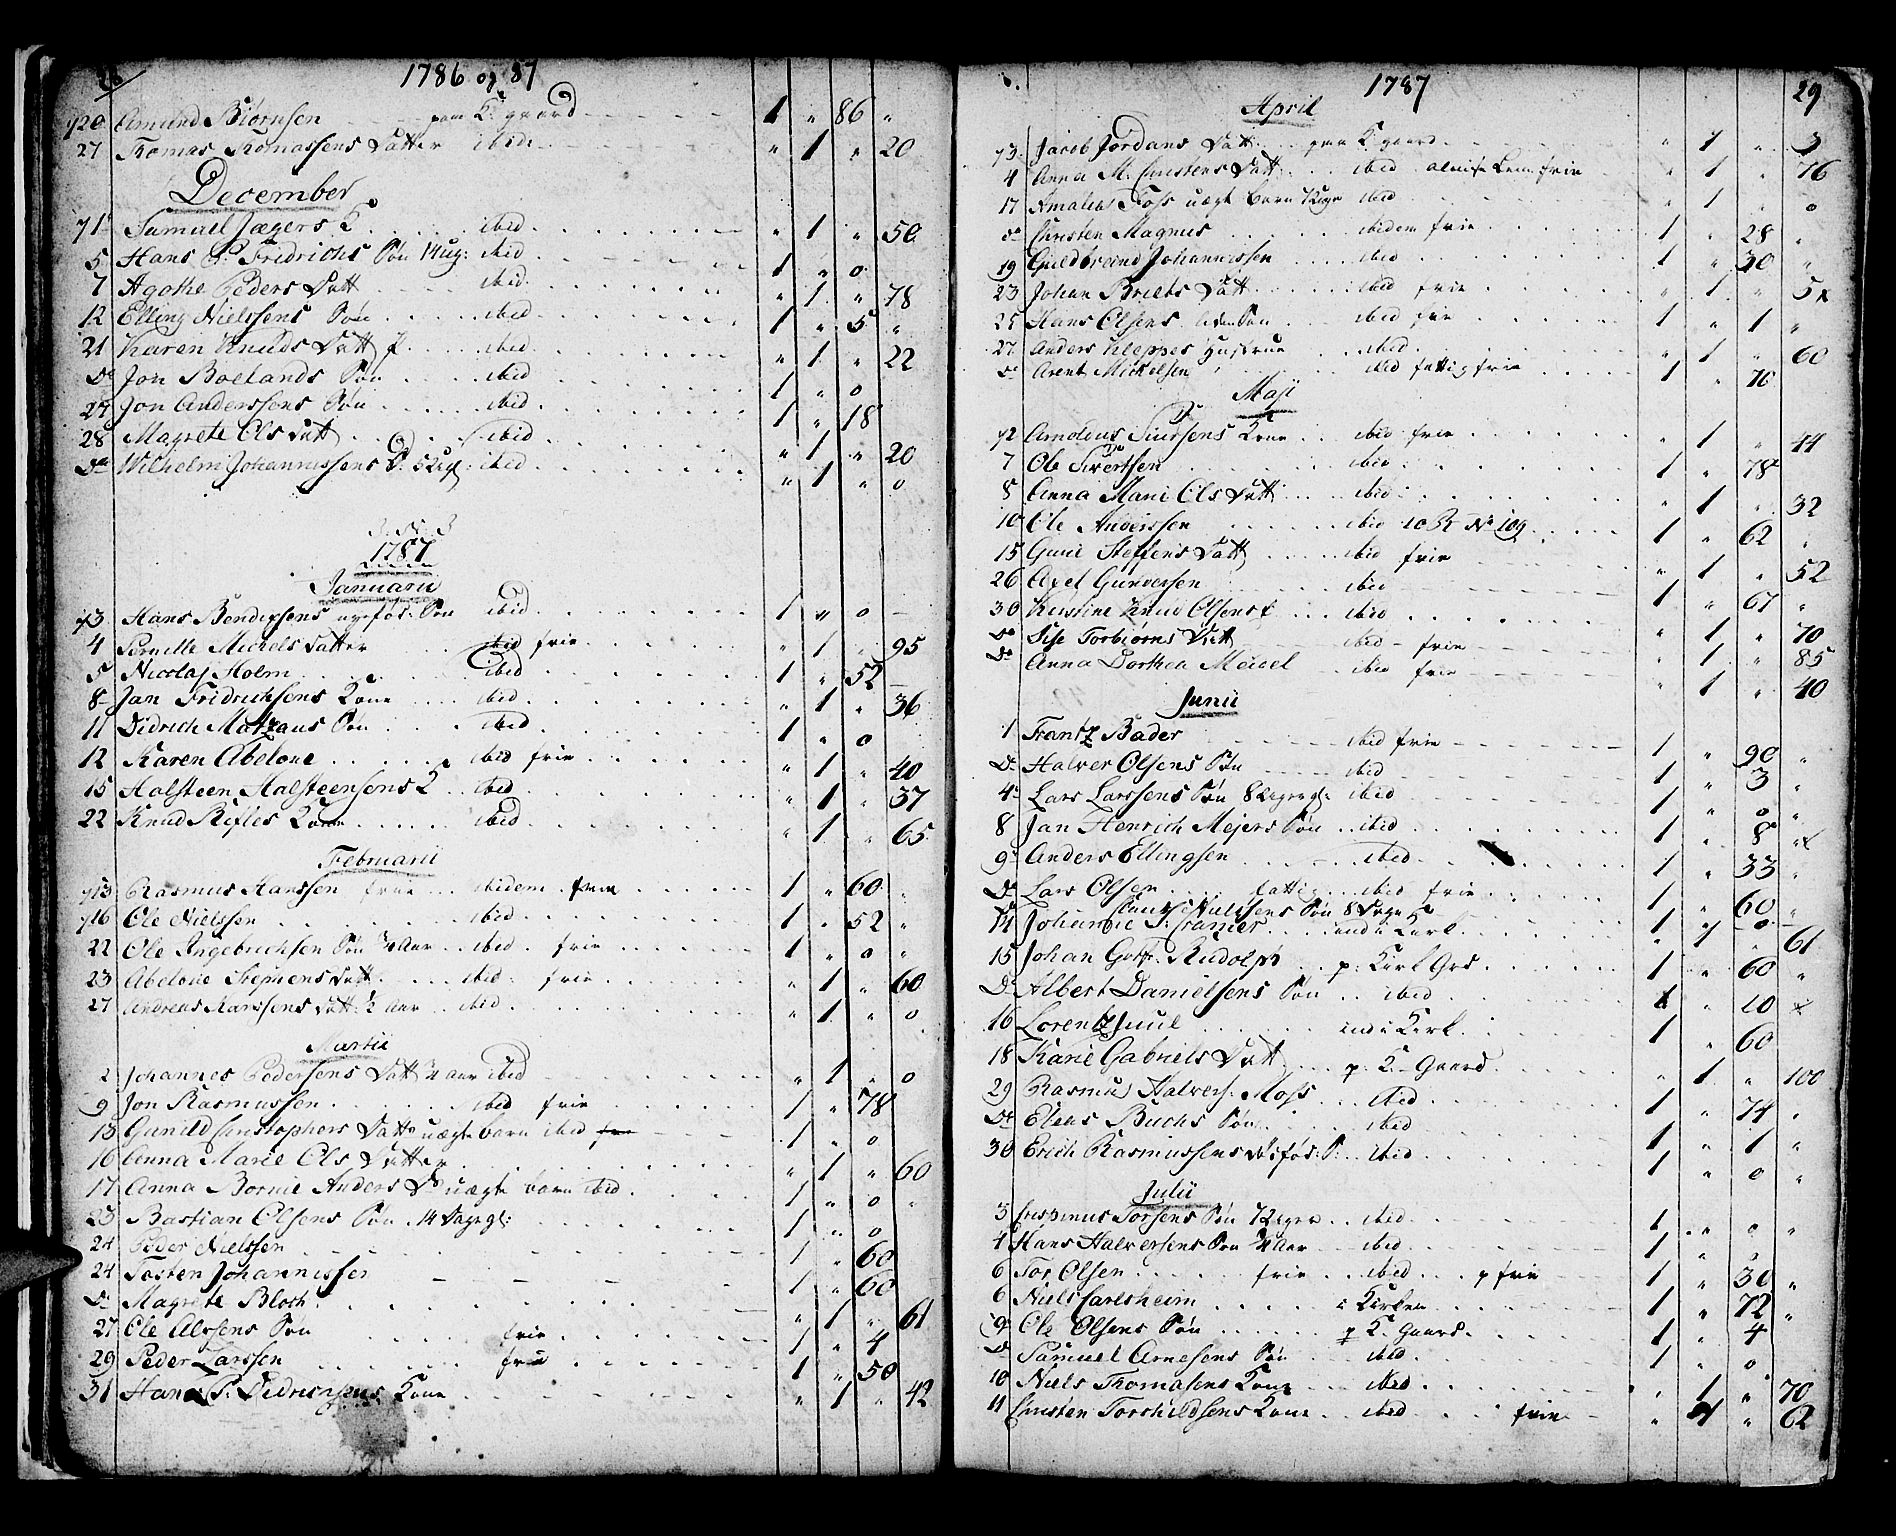 28 1786 og 87
720 Amund Biørnsen paa K. gaard 1 " 86 "
27 Tomas Tomassens Datter ibid " 1 " 20
December
71 Samuel Jægers K ibid " 1 " 50
5 Hans P. Fredrichs Søn 14 ug: ibid 1 " 0
7 Agathe Peders Datt ibid " 1 " 78
12 Elling Nielssens Søn ibid 1 " 5 "
21 Karen Knuds Datt ibid " 1 " 22
Do Jon Boelands Søn ibid 1 " 0
27 Jon Anderssens Søn ibid 1 " 18
28 Magrete Ols Datt ibid " 1 " 20
Do Wilhelm Johannessens D: 5 Ugl: ibid " 1 " 0
1787
Januarii
73 Hans Bendixsens nyefød: Søn ibid 1 " 0
4 Pernelle Michels Datter ibid frie " 1 " 95
5 Nicolaj Holm ibid 1 " 52
8 Jan Fridrichsens Kone ibid " 1 " 36
11 Didrich Matzaus Søn ibid 1 " 0
12 Karen Abelone ibid frie " 1 " 40
15 Halsteen Halsteensens K ibid " 1 " 37
22 Knud Rifles Kone ibid " 1 " 65
Februarii
713 Rasmus Hanssen frie ibidem frie 1 " 60 "
716 Ole Nielssen ibid 1 " 52 "
22 Ole Ingebrichsen Søn 3/4 Aar ibid frie 1 " 0 "
23 Abelone Stephens Datt ibid frie " 1 " 60
27 Andreas Hanssens Datt 1/2 Aar ibid " 1 " 0
Martii
2 Johannes Pedersens Datt 3/4 Aar ibid " 1 " 0
9 Jon Rasmussen ibid frie 1 " 78
13 Gunild Christophers Datt uægte barn ibid 1 " 0
16 Anna Marie Ols Datter " 1 " 60
17 Anna Bornie Anders D uægte barn ibid 1 " 0 "
23 Bastian Olsens Søn 14 Dage gl: 1 " 0
24 Peder Nielssen 1 " 60
24 Tosten Johannissen 1 " 60
Do Magrete Bloch " 1 " 61
27 Ole Alssens Søn frie 1 " 4
29 Peder Larssen frie 1 " 50
31 Hans P: Didrichsens Kone " 1 " 42
1787 29
April
73 Jacob Jordans Datt paa K gaard " 1 " 3
4 Anna M. Christens Datt ibid frie " 1 " 76
17 Amalia Foss uægt barn 7 Uger ibid " 1 " 0
do Christen Magnus ibidem frie 1 " 28 "
19 Guldbrand Johannissen ibid 1 " 30 "
23 Johan Brechs Datt ibid frie " 1 " 5
25 Hans Olsens liden Søn ibid frie 1 " 1 "
27 Anders Kleppes Hustrue ibid " 1 " 60
do Arent Mickelsen ibid fattig frie 1 " 70
Maji
72 Amoleus Siursens Kone ibid frie " 1 " 44
7 Ole Sivertsen ibid 1 " 78
8 Anna Marie Ols Datt ibid " 1 " 32
10 Ole Anderssen ibid 10 R No 109 1 " 62 "
15 Guni Steffens Datt ibid frie " 1 " 52
26 Axel Gunversen ibid 1 " 67 "
30 Kirstine Knud Olsens ibid " 1 " 70
Do Sise Torbiørns Datt ibid frie " 1 " 85
Do Anna Dorthea Meidel ibid frie " 1 " 40
Junii
1 Frantz Bader ibid frie 1 " 90 "
Do Halver Olsens Søn ibid 1 " 3 "
4 Lars Larssens Søn 8 Uger gl: ibid 1 " 0 "
8 Jan Henrich Mejers Søn ibid 1 " 8
9 Anders Ellingsen ibid 1 " 33 "
Do Lars Olsen fattig ibid frie 1 " 60 "
Nielssens Søn 8 Dage 1 " 0
14 Johanne S. Cramer ind i Kirk " 1 " 61
15 Johan Gotfr. Rudolph p: Kirk Grd 1 " 60 "
Do Albert Danielsens Søn ibid 1 " 10
16 Lorentz Juul ind i Kirk 1 " 60
18 Karie Gabriels Datt p: K. Gaard " 1 " 100
29 Rasmus Halvers. Moss ibid 1 " 74 "
Do Eleas Buchs Søn ibid 1 " 1 "
30 Erich Rasmussens død fød: S: ibid 1 " 0 "
Julii
3 Crispinus Torsens Søn 7 Uger ibid 1 " 0 "
4 Hans Halversens Søn 3/4 Aar ibid 1 " 0
6 Tor Olsen frie ibid frie 1 " 30 "
6 Niels Carlsheim i Kirken 1 " 72 "
9 Ole Olsens Søn p K. Gaard 1 " 4
Do Samuel Arnesens Søn ibid 1 " 0
10 Niels Thomasens Kone ibid " 1 " 70
11 Christen Torchildsens Kone ibid frie " 1 " 62